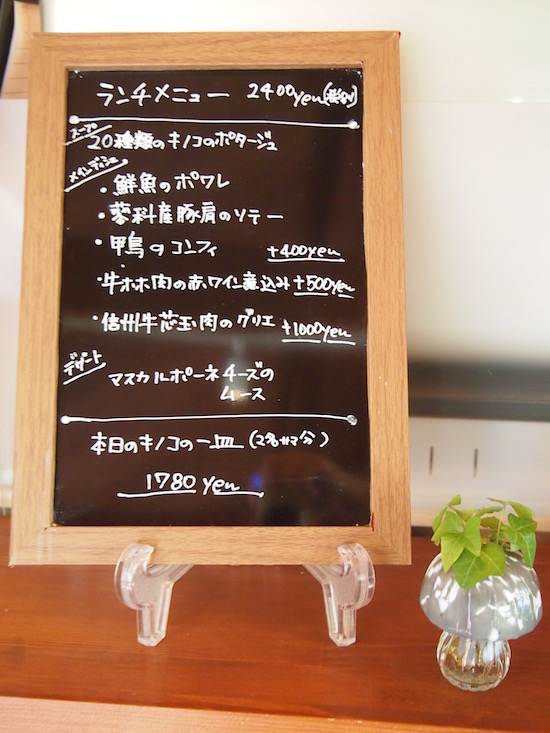 ランチメニュー 2400yen(税別)
スープ
20種類のキノコのポタージュ
メインディッシュ
・鮮魚のポワレ
・蓼科産豚肩のソテー
・甲鳥のコンフィ +400yen
・牛ホホ肉の赤ワイン煮込み+500yen
・信州牛芯玉肉のグリエ +1000yen
デザート
マスカルポーネチーズの
ムース
本日のキノコの一皿(2名サマ分)
1780yen